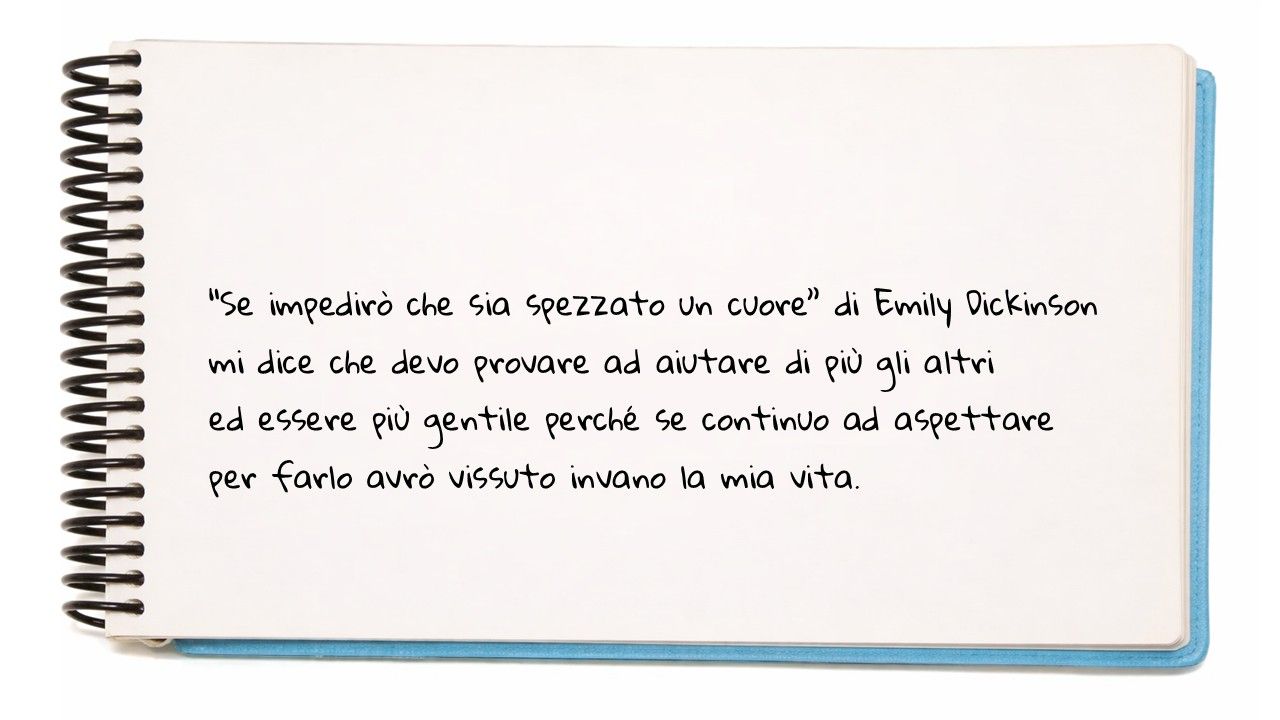 "Se impedirò che sia spezzato un cuore” di Emily Dickinson
mi dice che devo provare ad aiutare di più gli altri
ed essere più gentile perché se continuo ad aspettare
per farlo avrò vissuto invano la mia vita.